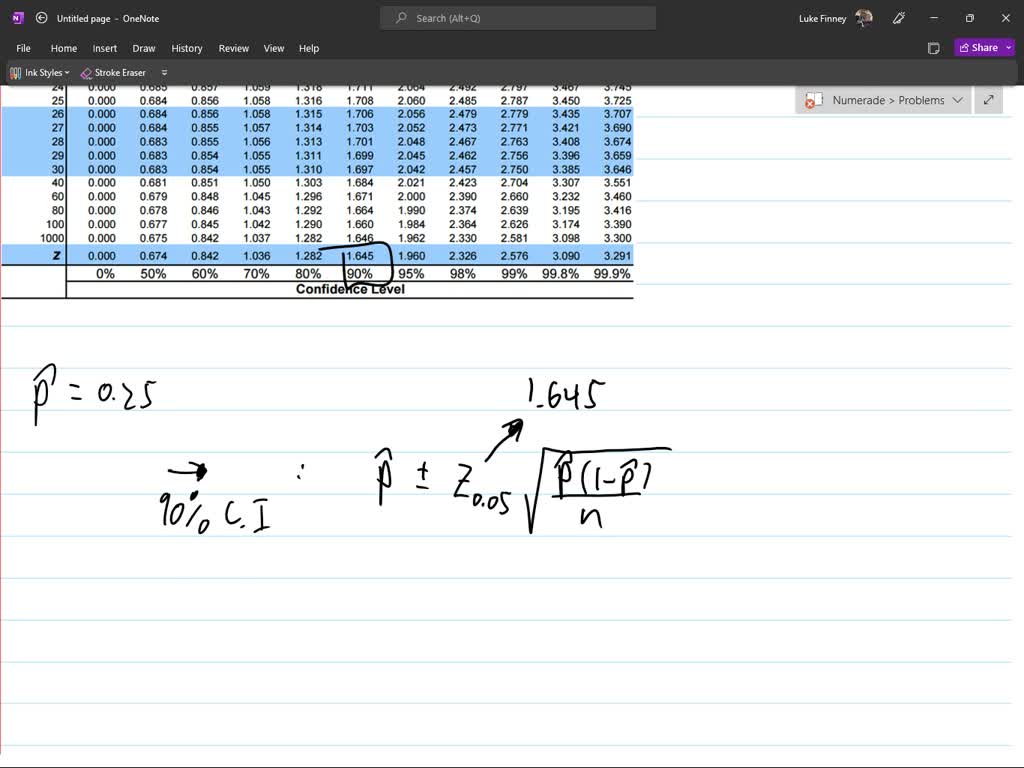 Untitled page - OneNote
Search (Alt+Q)
Luke Finney
File Home Insert Draw History Review View Help
Share
Ink Styles
Stroke Eraser
Numerade > Problems
24 0.000 0.685 0.857 1.059 1.318 1.711 2.064 2.492 2.797 3.467 3.745
25 0.000 0.684 0.856 1.058 1.316 1.708 2.060 2.485 2.787 3.450 3.725
26 0.000 0.684 0.856 1.058 1.315 1.706 2.056 2.479 2.779 3.435 3.707
27 0.000 0.684 0.855 1.057 1.314 1.703 2.052 2.473 2.771 3.421 3.690
28 0.000 0.683 0.855 1.056 1.313 1.701 2.048 2.467 2.763 3.408 3.674
29 0.000 0.683 0.854 1.055 1.311 1.699 2.045 2.462 2.756 3.396 3.659
30 0.000 0.683 0.854 1.055 1.310 1.697 2.042 2.457 2.750 3.385 3.646
40 0.000 0.681 0.851 1.050 1.303 1.684 2.021 2.423 2.704 3.307 3.551
60 0.000 0.679 0.848 1.045 1.296 1.671 2.000 2.390 2.660 3.232 3.460
80 0.000 0.678 0.846 1.043 1.292 1.664 1.990 2.374 2.639 3.195 3.416
100 0.000 0.677 0.845 1.042 1.290 1.660 1.984 2.364 2.626 3.174 3.390
1000 0.000 0.675 0.842 1.037 1.282 1.646 1.962 2.330 2.581 3.098 3.300
z 0.000 0.674 0.842 1.036 1.282 1.645 1.960 2.326 2.576 3.090 3.291
0% 50% 60% 70% 80% 90% 95% 98% 99% 99.8% 99.9%
Confidence Level
p̂ = 0.25
1.645
→ : p̂ ± Z0.05 √(p̂(1-p̂)/n)
90% C.I